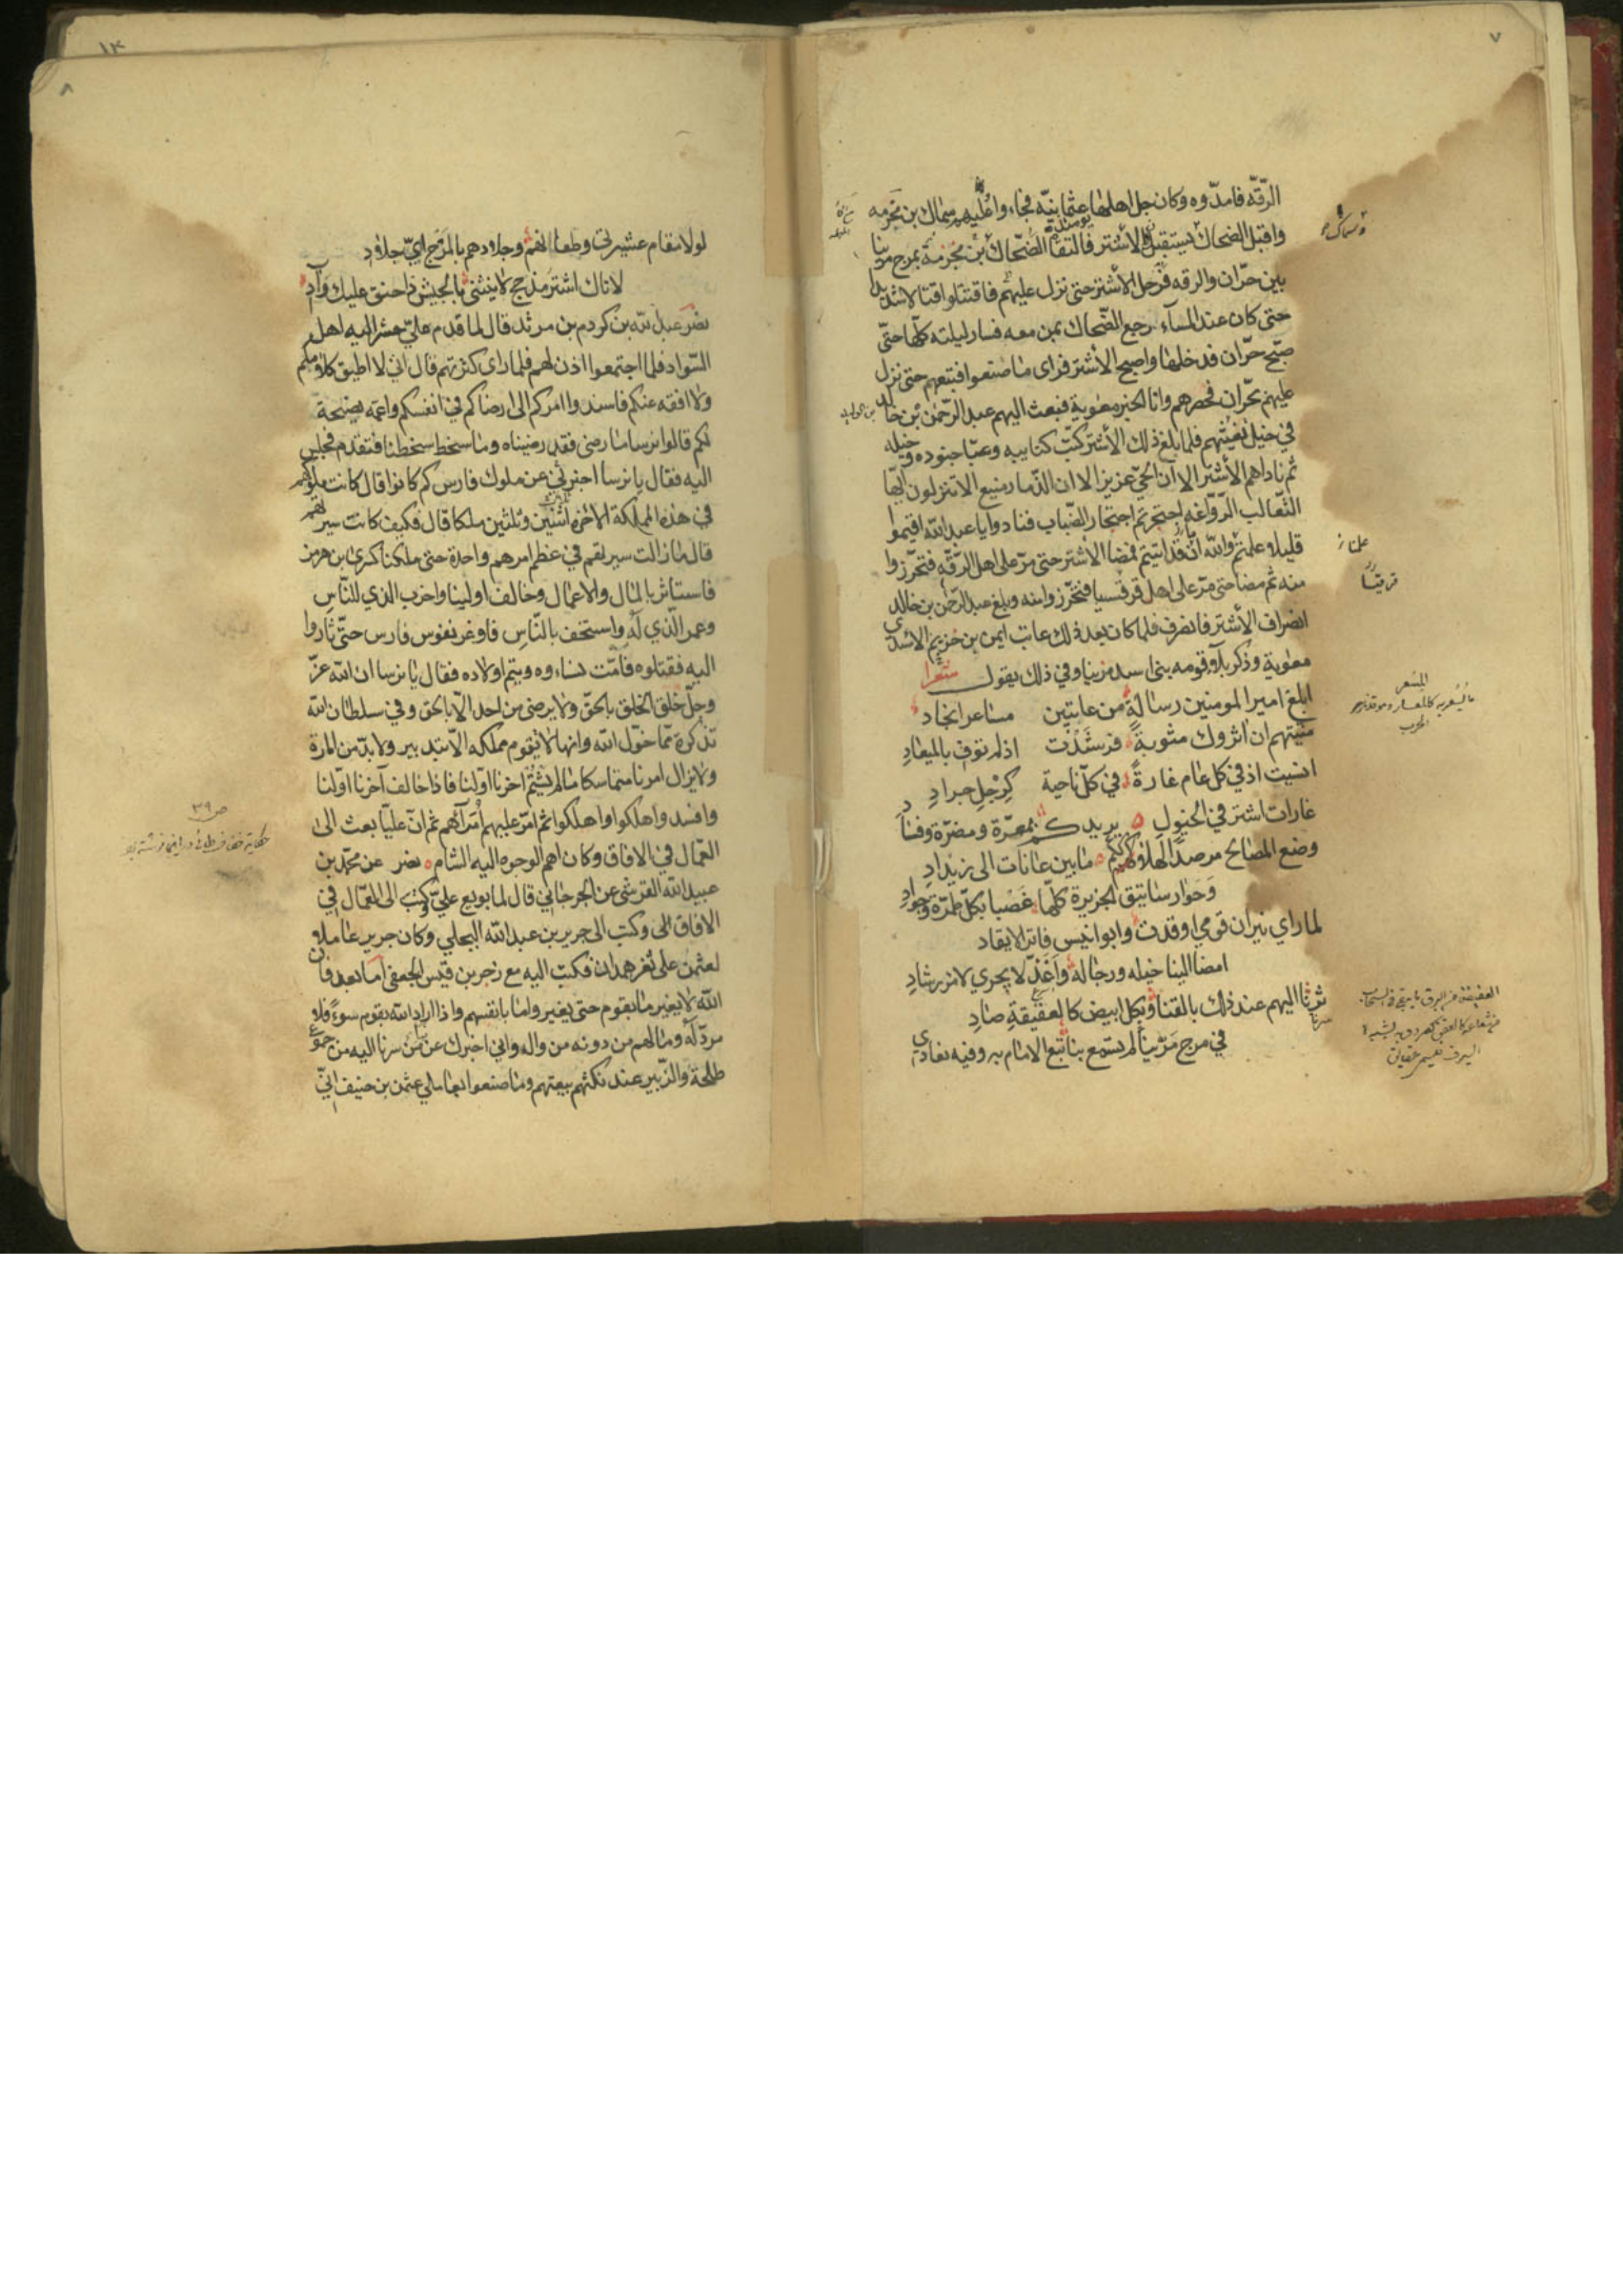 ٧
الرّقّه فامدّوه وكان جل اهلها عثمانيّه فجاءوا عليهم سماك بن مخرمه
واقبل الضحاك يستقبل الاشتر فالتقا الضّحاك بن مخرمة بمرج مرينا
بين حرّان والرقه فرحل الأشتر حتى نزل عليهم فاقتتلوا قتالا شديدا
حتى كان عند المسآء رجع الضّحاك بمن معه فسار ليلته كلها حتّى
صبّح حرّان فدخلها واصبح الأشتر فراى ما صنعوا فتبعهم حتى نزل
عليهم بحرّان فحصرهم واتا الخبر معوية فبعث اليهم عبد الرّحمن بن خالد
في خيل يغيثهم فلما بلغ ذلك الأشتر كتّب كتايبه وعبّا جنوده وخيله
ثم ناداهم الأشتر الا ان الحيّ عزيز الا ان الذّمار منيع الا تنزلون ايّها
الثّعالب الرّوّاغه احتجرتم احتجار الضّباب فنادوا يا عبد الله اقيموا
قليلا علمتم والله ان قد اتيتم فمضا الاشتر حتى مرّ على اهل الرّقّه فتحرّزوا
منه ثم مضا حتى مرّ على اهل قرقيسيا فتحرّزوا منه وبلغ عبد الرّحمن بن خالد
انصراف الأشتر فانصرف فلما كان بعد ذلك عاتب ايمن بن خزيم الاسدي
معوية وذكر بلاء قومه بني اسد مرينا وفي ذلك يقول شعرا
ابلغ امير المومنين رسالة من عاتبين مساعر انجاد
منّيتهم ان اثروك مثوبة فرشدت اذ لم توف بالميعاد
انسيت اذ في كل عام غارة في كل ناحية كرجل جراد
غارات اشتر في الخيول يريدكم بمعرّة ومضرّة وفساد
وضع المصالح مرصدا لهلاككم ما بين عانات الى زيداد
وحوا رساتيق الجزيرة كلّها غصبا بكل طمرّة وجواد
لما راي نيران قومي اوقدت وابو انيس فاتر الايقاد
امضا الينا خيله ورجاله واغذّ لا يجري لامر رشاد
ثرنا اليهم عند ذلك بالقنا وبكل ابيض كالعقيقة صاد
في مرج مرينا الم تسمع بنا نبغ الامام به وفيه نعادي
المسعر
٨
لولا مقام عشيرتي وطعانهم وجلادهم بالمرج اي جلاد
لاتاك اشتر مذحج لا ينثني بالجيش ذا حنق عليك وآد
نصر عبد الله بن كردم بن مرثد قال لما قدم عليّ حشر اليه اهل
السّواد فلما اجتمعوا اذن لهم فلما راى كثرتهم قال اني لا اطيق كلامكم
ولا افقه عنكم فاسندوا امركم الى ارضاكم في انفسكم واعمه نصيحة
لكم قالوا نرسا ما رضى فقد رضيناه وما سخط سخطنا فتقدم فجلس
اليه فقال يا نرسا اخبرني عن ملوك فارس كم كانوا قال كانت ملوكهم
في هذه المملكة الاخرة اثنين وثلثين ملكا قال فكيف كانت سيرتهم
قال ما زالت سيرتهم في عظم امرهم واحدة حتى ملكنا كسرى بن هرمز
فاستاثر بالمال والاعمال وخالف اولينا واخرب الذي للنّاس
وعمر الّذي له واستخف بالنّاس فاوغر نفوس فارس حتّى ثاروا
اليه فقتلوه فامّت نساءوه ويتم اولاده فقال يا نرسا ان الله عزّ
وجلّ خلق الخلق بالحقّ ولا يرضى من احد الّا بالحق وفي سلطان الله
تذكرة ممّا خوّل الله وانها لا تقوم مملكه الّا بتدبير ولا بدّ من امارة
ولا يزال امرنا متماسكا ما لم يشتم اخرنا اوّلنا فاذا خالف آخرنا اوّلنا
وافسدوا هلكوا واهلكوا ثم امّر عليهم امرآهم ثم انّ عليّا بعث الى
العمّال في الافاق وكان اهم الوجوه اليه الشام نصر عن محمّد بن
عبيد الله القرشي عن الجرجاني قال لما بويع عليّ وكتب الى العمّال في
الافاق وكتب الى جرير بن عبد الله البجلي وكان جرير عاملا
لعثمن على ثغر همدان فكتب اليه مع زحر بن قيس الجعفي اما بعد فان
الله لا يغير ما بقوم حتى يغيروا ما بانفسهم واذا اراد الله بقوم سوءًا فلا
مردّ له وما لهم من دونه من وال واني اخبرك عن من سرنا اليه من جموع
طلحة والزّبير عند نكثهم بيعتهم وما صنعوا بعاملي عثمن بن حنيف انّي
ص ٣٩